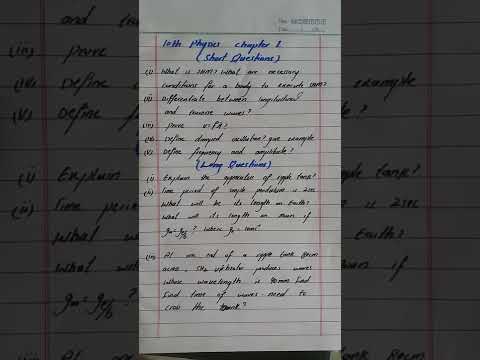 10th Physics chapter 1
(Short Questions)
(i) What is SHM? What are necessary
conditions for a body to execute SHM?
(ii) Differentiate between longitudinal
and waves?
(iii) Prove v=fλ?
(iv) Define damped oscillation? give example
(v) Define frequency and amplitude?
(Long Questions)
(i) Explain the apparatus of ripple tank?
(ii) Time period of simple pendulum is 2sec
What will be its length on Earth?
What will its length on moon if
gm = ge/6 ? where ge = 10ms⁻²
(iii) At one end of a ripple tank 80cm
across, 5Hz vibrator produces waves
whose wavelength is 40mm find
find time of waves need to
cross the tank?